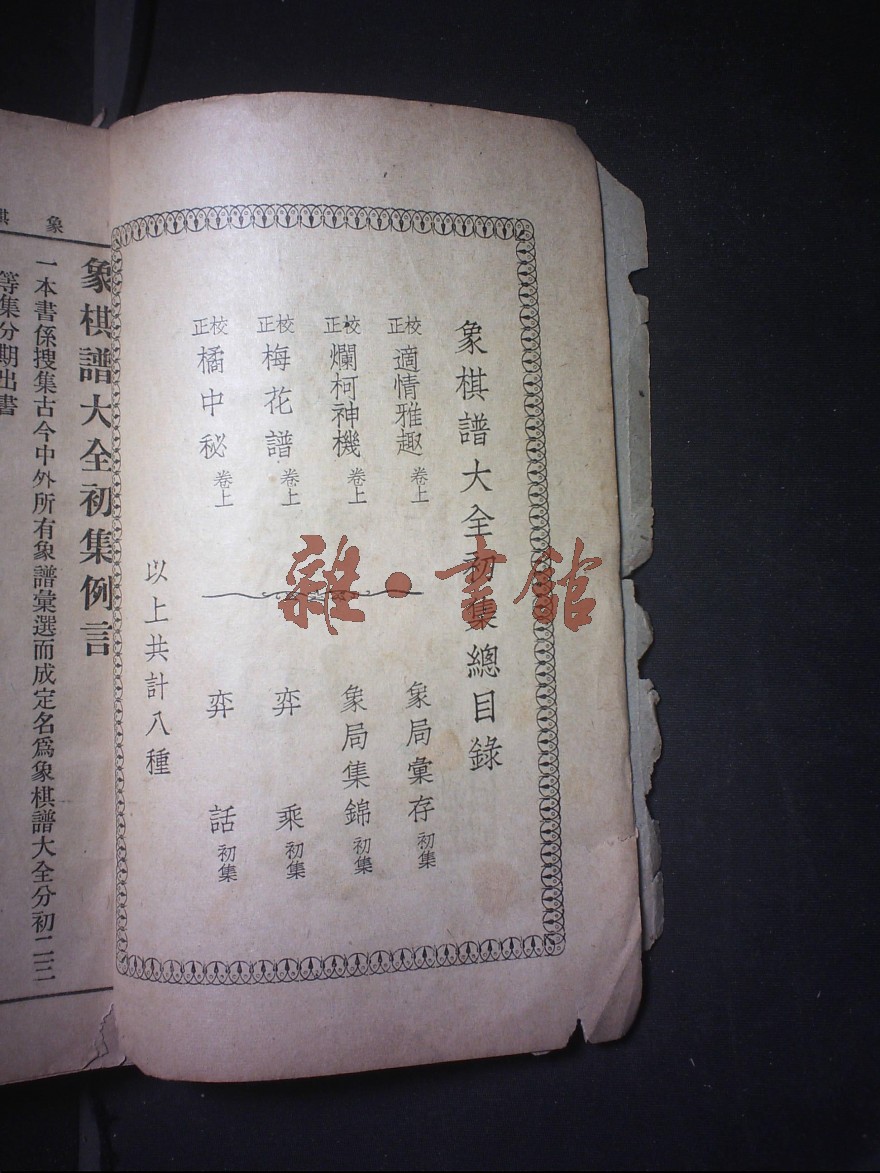 象棋譜大全初集總目錄
校正適情雅趣 卷上
校正爛柯神機 卷上
校正梅花譜 卷上
校正橘中秘 卷上
象局彙存 初集
象局集錦 初集
弈乘 初集
弈話 初集
以上共計八種
雜·書館
象棋
象棋譜大全初集例言
一本書係搜集古今中外所有象譜彙選而成定名爲象棋譜大全分初二三
等集分期出書